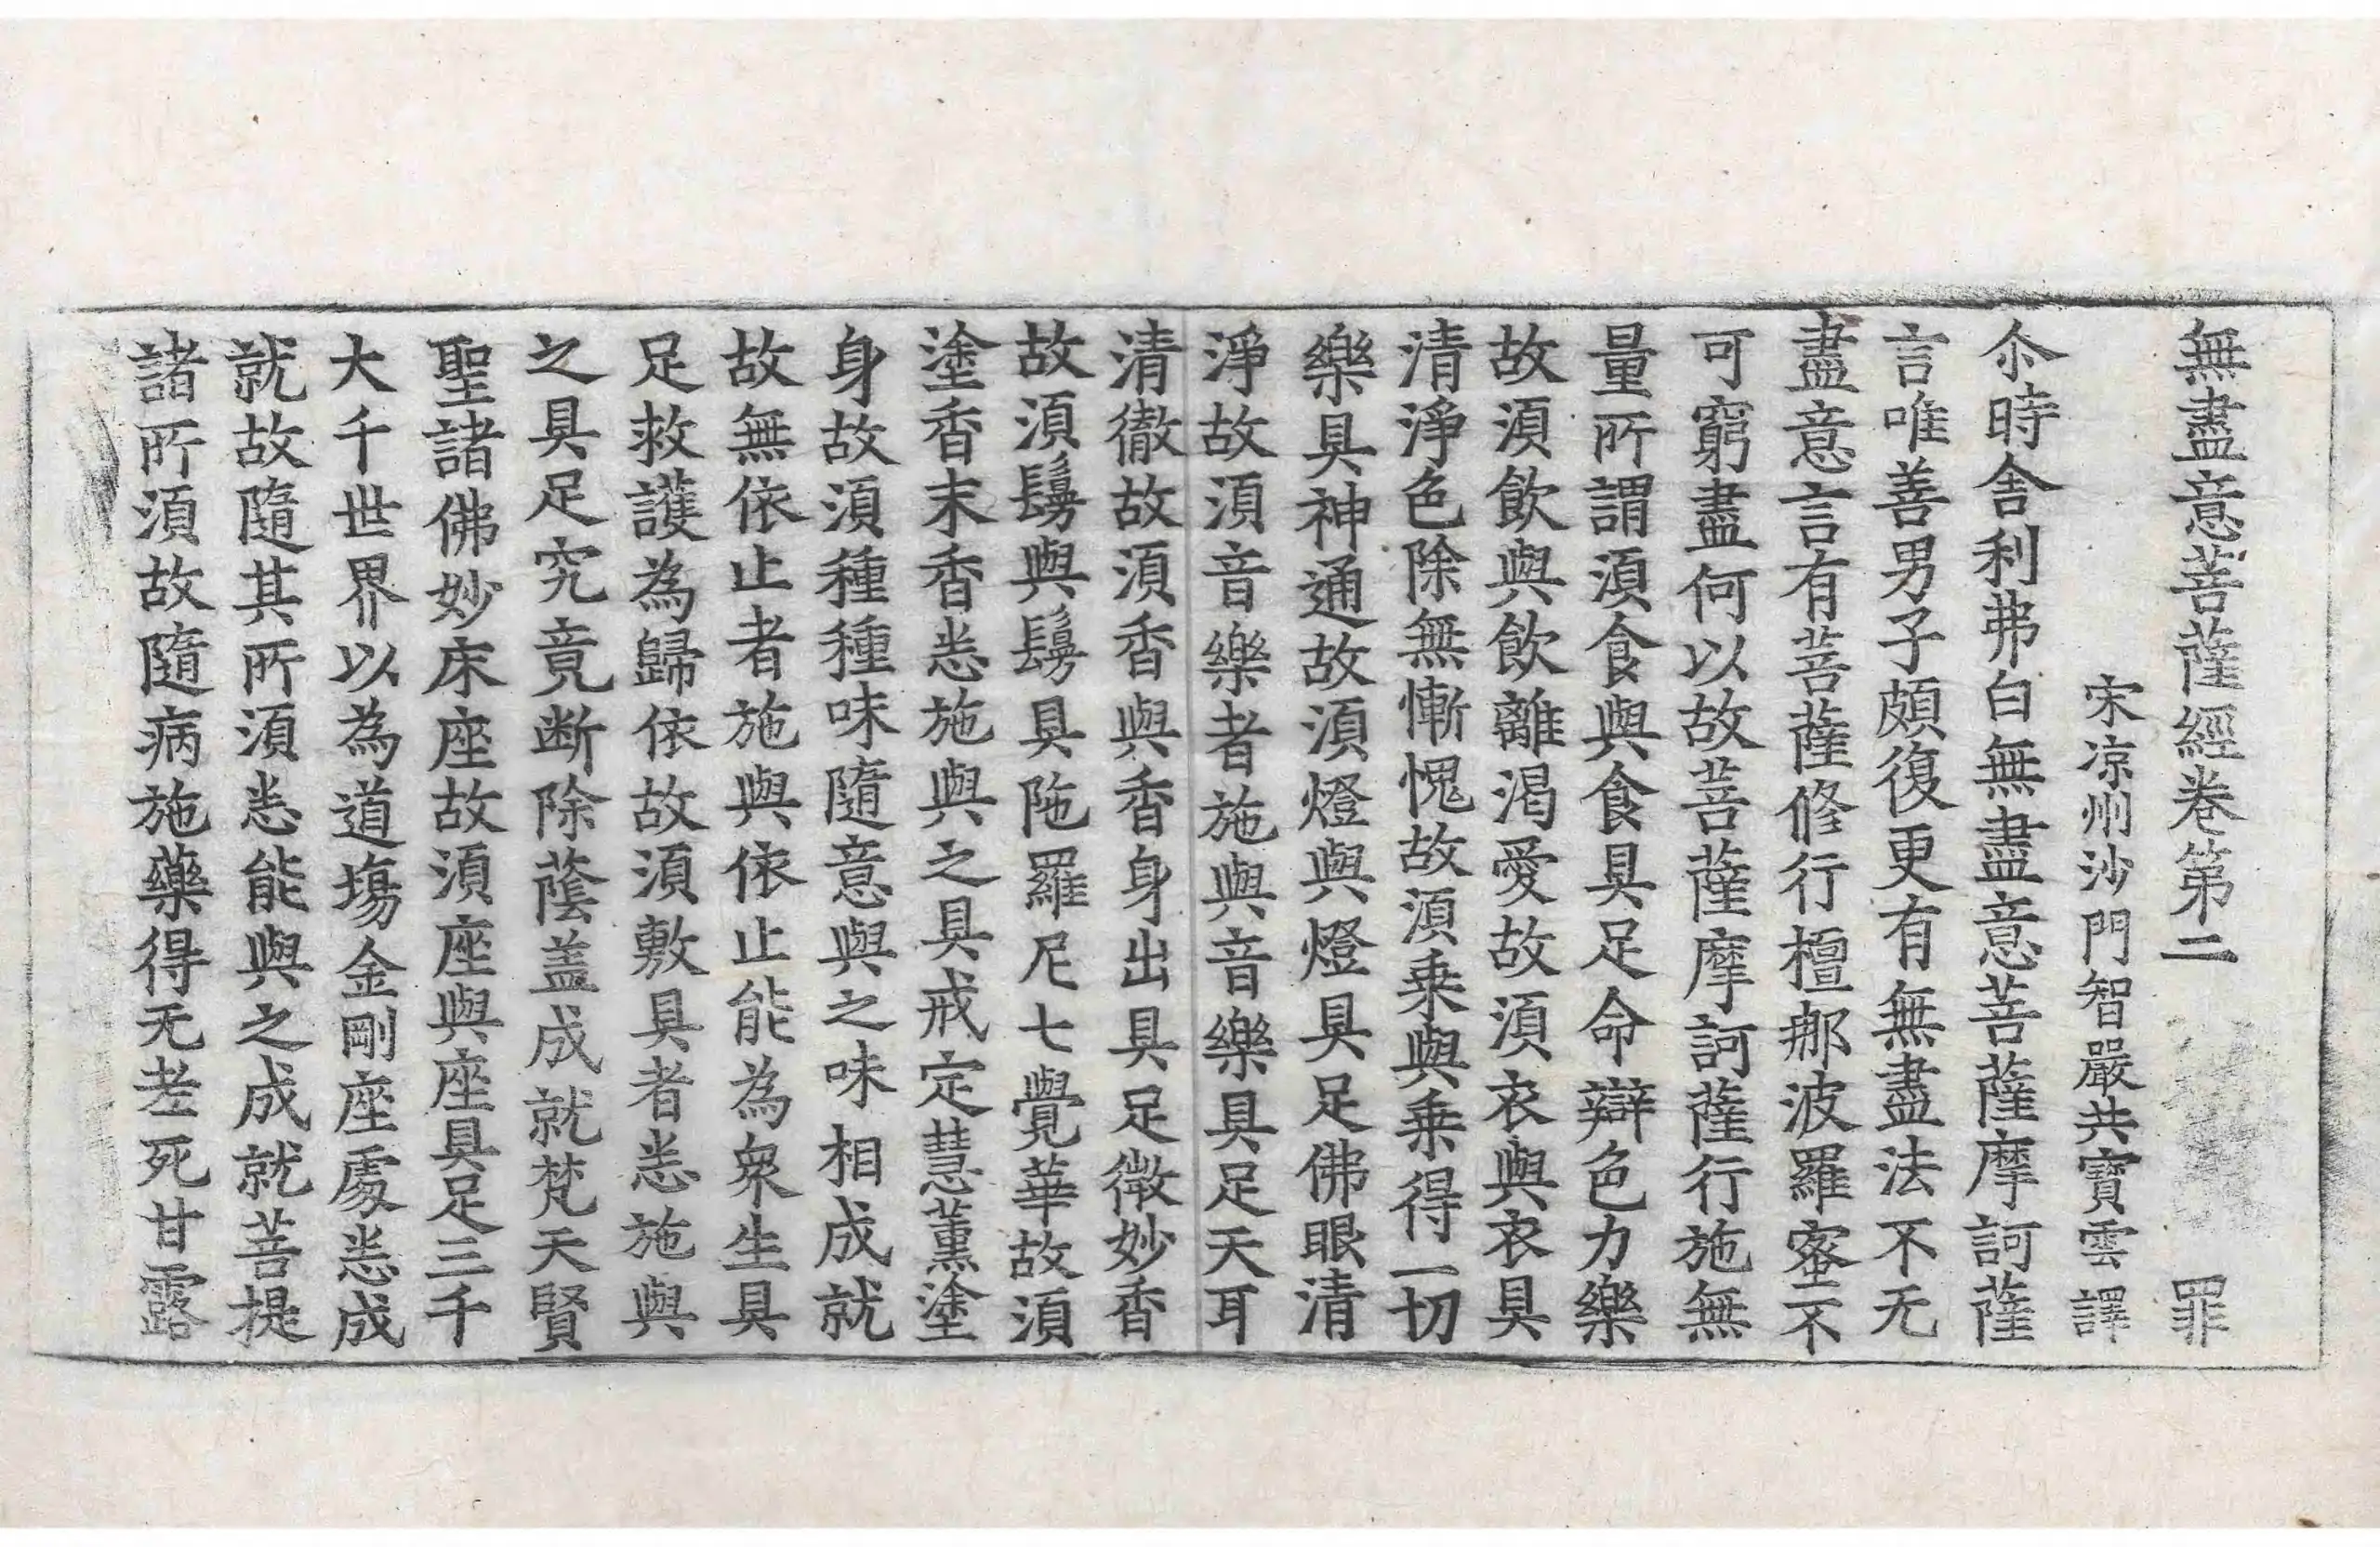 無盡意菩薩經卷第二 罪
宋涼州沙門智嚴共寶雲譯
尒時舍利弗白無盡意菩薩摩訶薩
言唯善男子頗復更有無盡法不无
盡意言有菩薩修行檀那波羅蜜不
可窮盡何以故菩薩摩訶薩行施無
量所謂湏食與食具足命辯色力樂
故湏飲與飲離渴愛故湏衣與衣具
清淨色除無慚愧故湏乗與乗得一切
樂具神通故湏燈與燈具足佛眼清
淨故湏音樂者施與音樂具足天耳
清徹故湏香與香身出具足微妙香
故湏鬘與鬘具陁羅尼七覺華故湏
塗香末香悉施與之具戒定慧薰塗
身故湏種種味隨意與之味相成就
故無依止者施與依止能為衆生具
足救護為歸依故湏敷具者悉施與
之具足究竟断除蔭盖成就梵天賢
聖諸佛妙床座故湏座與座具足三千
大千世界以為道塲金剛座處悉成
就故隨其所湏悉能與之成就菩提
諸所湏故隨病施藥得无老死甘露